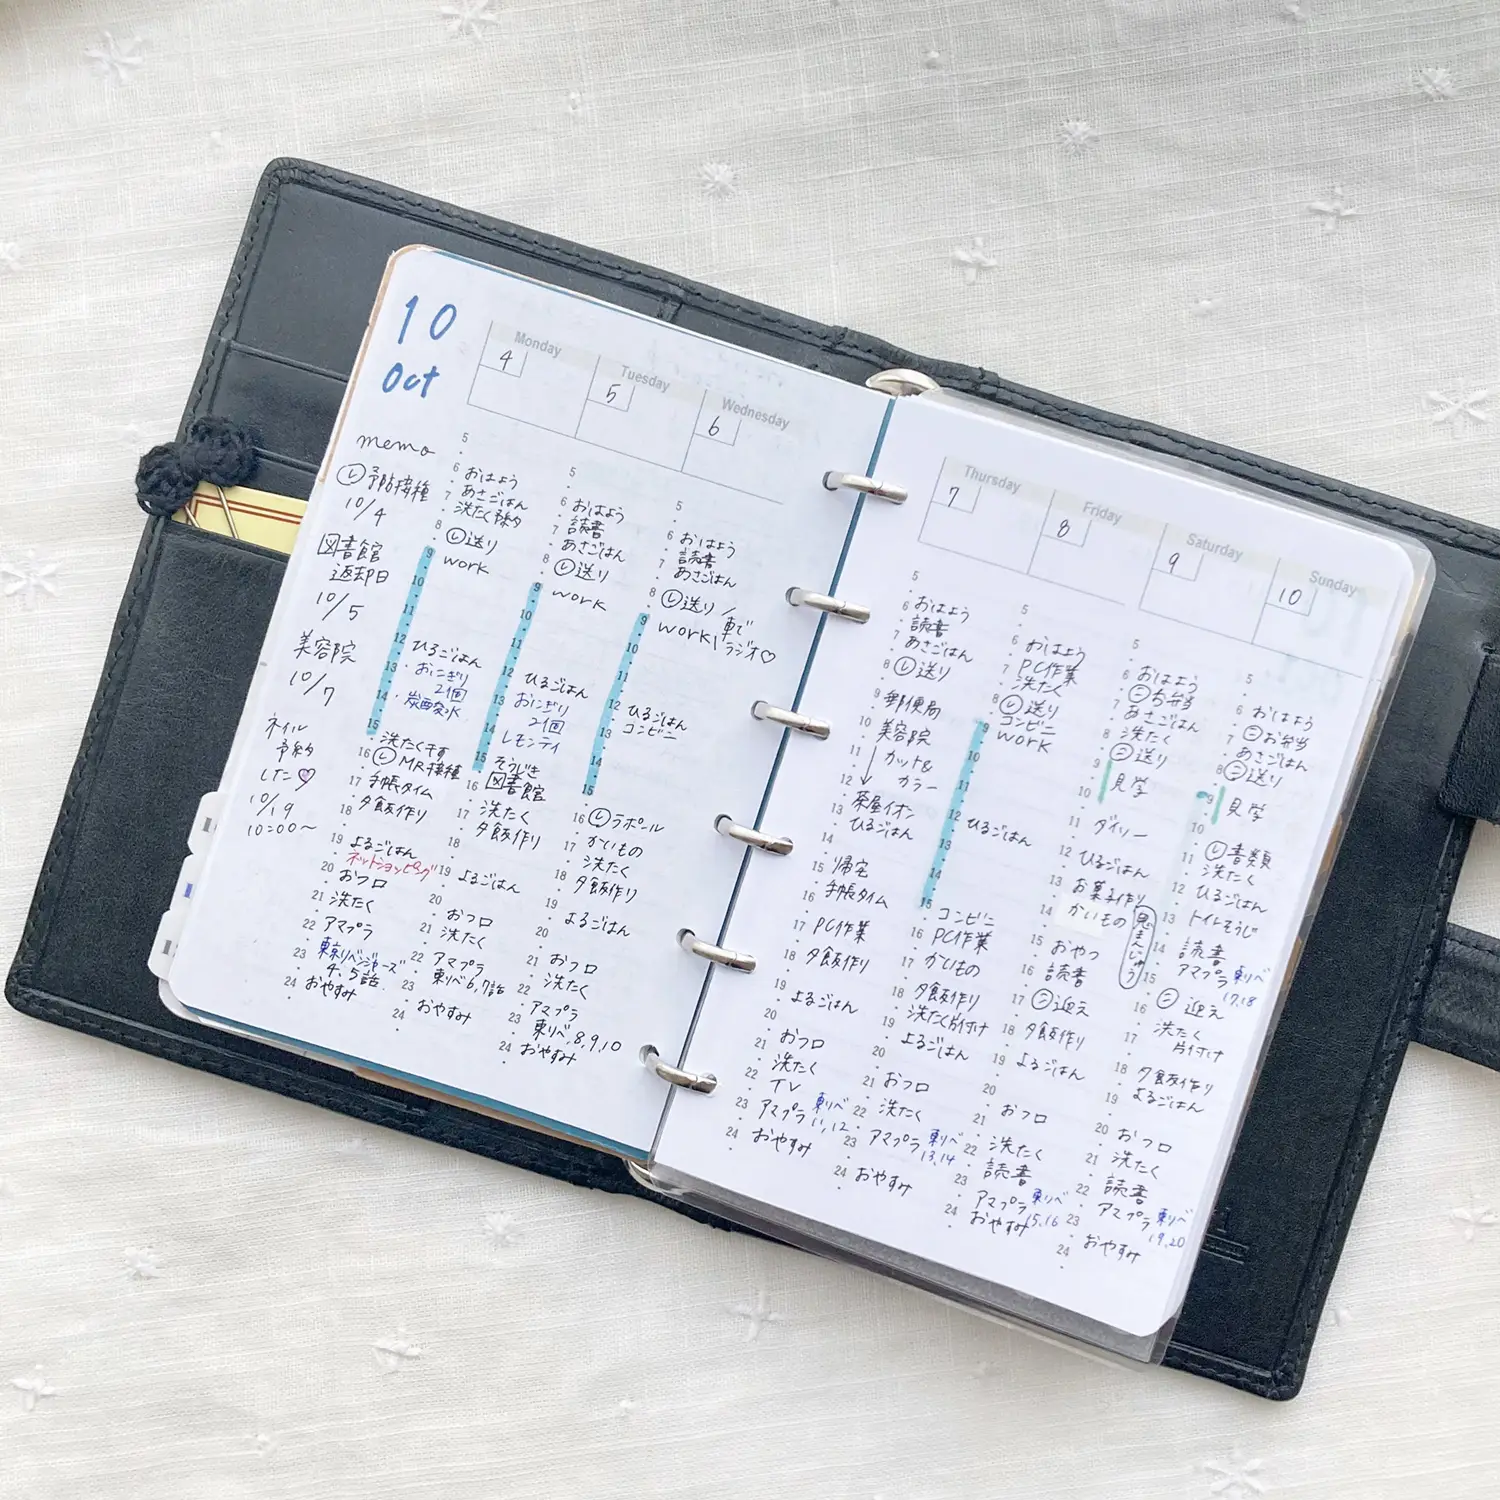 10
Oct
memo
㋹予防接種
10/4
図書館
返却日
10/5
美容院
10/7
ネイル
予約
した♡
10/19
10:00〜
Monday
4
5
6 おはよう
7 あさごはん
洗たく予約
8 ㋹送り
9 work
10
11
12 ひるごはん
13 ・おにぎり
2個
14 ・炭酸水
15
洗たく干す
16 ㋹MR接種
17 手帳タイム
18 夕飯作り
19 よるごはん
ネットショッピング
20 おフロ
21 洗たく
22 アマプラ
23 東京リベンジャーズ
4、5話
24 おやすみ
Tuesday
5
5
6 おはよう
7 読書
あさごはん
8 ㋹送り
9 work
10
11
12 ひるごはん
13 おにぎり
2個
14 レモンティ
15 そうじき
16 図書館
17 洗たく
夕飯作り
18
19 よるごはん
20 おフロ
21 洗たく
22 アマプラ
東リベ6,7話
23 おやすみ
24
Wednesday
6
5
6 おはよう
7 読書
あさごはん
8 ㋹送り
9 work
車で
ラジオ♡
10
11
12 ひるごはん
13 コンビニ
14
15
16 ㋹ラポール
17 かいもの
洗たく
18 夕飯作り
19 よるごはん
20
21 おフロ
22 洗たく
アマプラ
23 東リベ8,9,10
24 おやすみ
Thursday
7
5
6 おはよう
読書
7 あさごはん
8 ㋹送り
9 郵便局
10 美容院
11 カット&
カラー
12
茶屋イオン
13 ひるごはん
14
15 帰宅
16 手帳タイム
17 PC作業
18 夕飯作り
19 よるごはん
20
21 おフロ
洗たく
22 TV
23 アマプラ 東リベ
11,12
24 おやすみ
Friday
8
5
6 おはよう
7 PC作業
洗たく
8 ㋹送り
コンビニ
9 work
10
11
12 ひるごはん
13
14
15 コンビニ
16 PC作業
17 かいもの
18 夕飯作り
洗たく片付け
19 よるごはん
20
21 おフロ
22 洗たく
23 アマプラ 東リベ
13,14
24 おやすみ
Saturday
9
5
6 おはよう
㊁お弁当
7 あさごはん
8 洗たく
㊁送り
9 見学
10
11 ダイソー
12 ひるごはん
13 お菓子作り
14 かいもの
15 おやつ
16 読書
17 ㊁迎え
18 夕飯作り
19 よるごはん
20
21 おフロ
22 洗たく
読書
23 アマプラ 東リベ
15,16
24 おやすみ
Sunday
10
5
6 おはよう
㊁お弁当
7 あさごはん
8 ㊁送り
9 見学
10
㋹書類
11 洗たく
12 ひるごはん
13 トイレそうじ
14 読書
15 アマプラ 東リベ
17,18
16 ㊁迎え
洗たく
17 片付け
18 夕飯作り
19 よるごはん
20 おフロ
21 洗たく
22 読書
アマプラ 東リベ
19,20
23
24 おやすみ